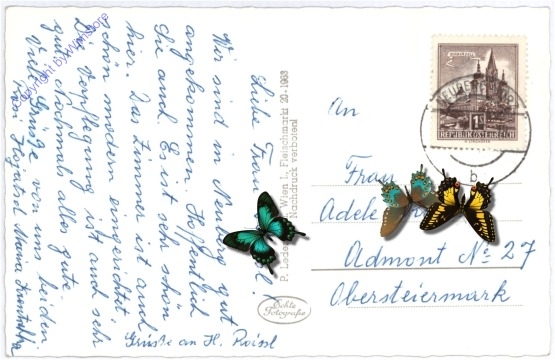 Liebe Frau
Wir sind in Neuberg gut
angekommen. Hoffentlich
Sie auch. Es ist sehr schön
hier. Das Zimmer ist auch
schön modern eingerichtet
Die Verpflegung ist auch sehr
gut. Nochmals alles gute.
Viele Grüße von uns beiden
Grüße an H.
Copyright by
P. Wien I., Fleischmarkt 20 - 1963
Nachdruck verboten!
Echte
Fotografie
1S
REPUBLIK ÖSTERREICH
b
An
Frau
Adele
Admont No 27
Obersteiermark